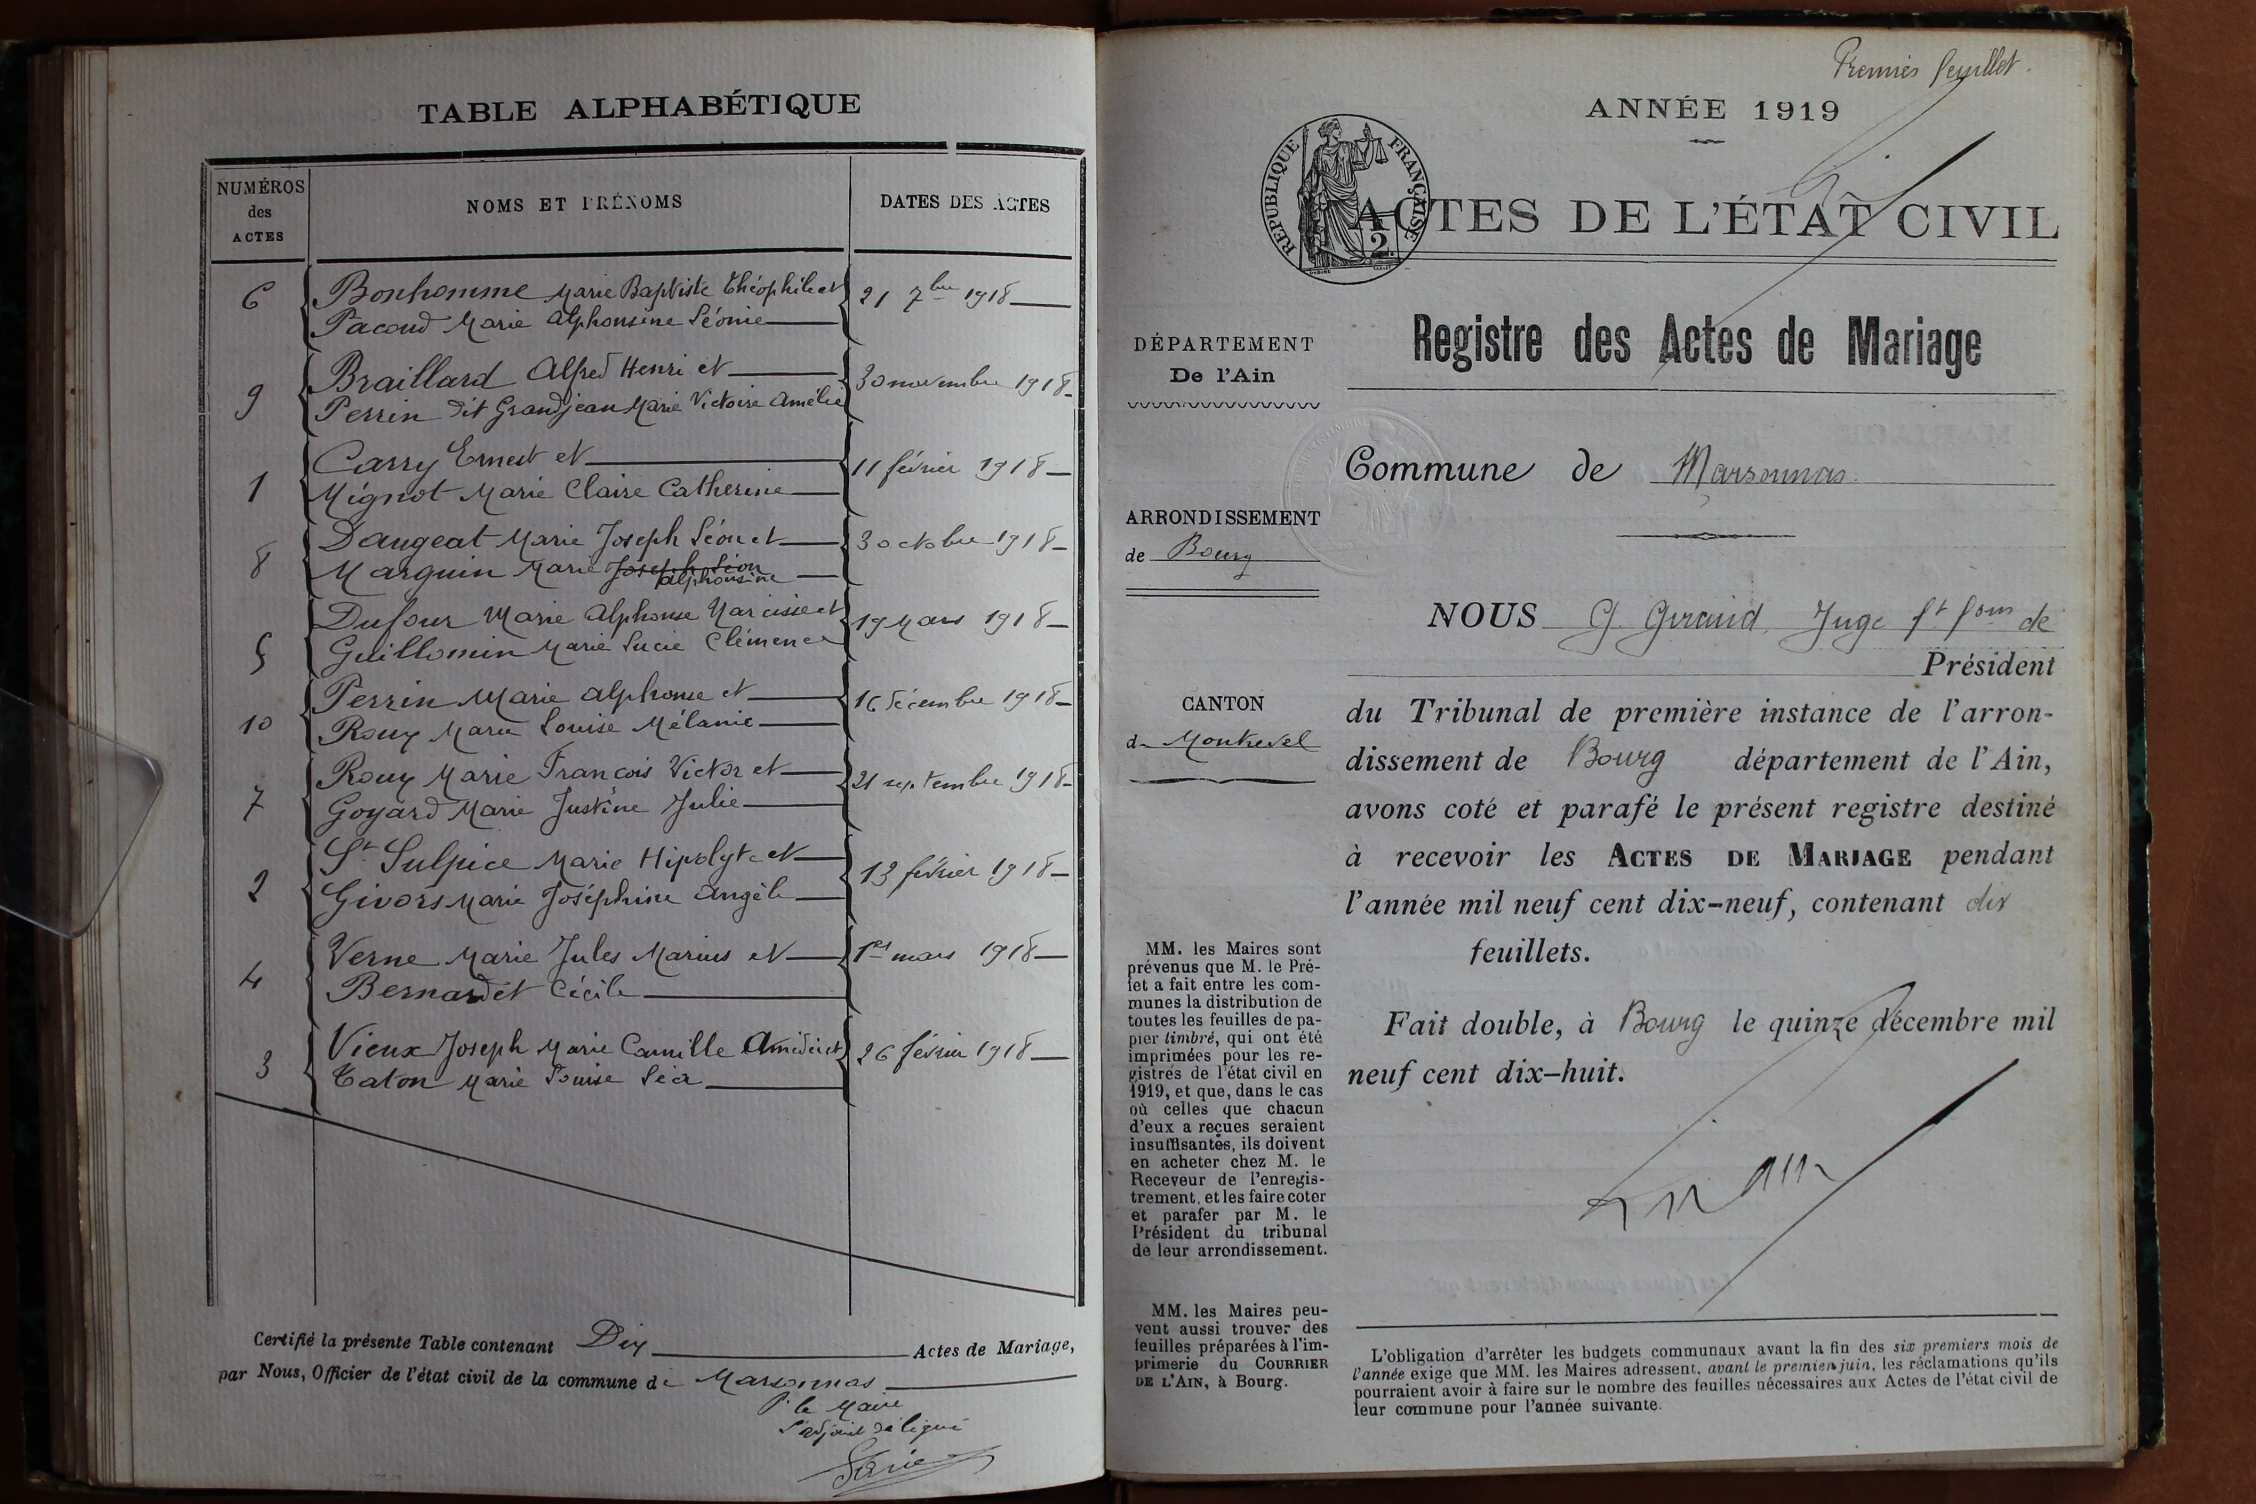 TABLE ALPHABÉTIQUE
NUMÉROS
des
ACTES
NOMS ET PRÉNOMS
DATES DES ACTES
6
Bonhomme Marie Baptiste Théophile et
21 7bre 1918
Pacoud Marie Alphonsine Léonie
9
Braillard Alfred Henri et
30 novembre 1918
Perrin dit Grandjean Marie Victoire Amélie
1
Carry Ernest et
11 février 1918
Mignot Marie Claire Catherine
8
Daugeat Marie Joseph Léon et
3 octobre 1918
Marguin Marie Joseph Léon
alphonsine
5
Dufour Marie Alphonse Narcisse et
19 Mars 1918
Guillomin Marie Lucie Clémence
10
Perrin Marie Alphonse et
16 décembre 1918
Roux Marie Louise Mélanie
7
Roux Marie François Victor et
21 septembre 1918
Goyard Marie Justine Julie
2
St Sulpice Marie Hipolyte et
13 février 1918
Givors Marie Joséphine Angèle
4
Verne Marie Jules Marius et
1er mars 1918
Bernardet Cécile
3
Vieux Joseph Marie Camille Amédée et
26 février 1918
Caton Marie Louise Léa
Certifié la présente Table contenant Dix Actes de Mariage,
par Nous, Officier de l'état civil de la commune de Marsonnas
P. le Maire
L'adjoint délégué
Premier feuillet.
ANNÉE 1919
RÉPUBLIQUE FRANÇAISE
2
ACTES DE L'ÉTAT CIVIL
Registre des Actes de Mariage
DÉPARTEMENT
De l'Ain
Commune de Marsonnas
ARRONDISSEMENT
de Bourg
CANTON
de Montrevel
NOUS G. Giraud, Juge ft fons de
Président
du Tribunal de première instance de l'arron-
dissement de Bourg département de l'Ain,
avons coté et parafé le présent registre destiné
à recevoir les ACTES DE MARIAGE pendant
l'année mil neuf cent dix-neuf, contenant dix
feuillets.
Fait double, à Bourg le quinze décembre mil
neuf cent dix-huit.
MM. les Maires sont
prévenus que M. le Pré-
fet a fait entre les com-
munes la distribution de
toutes les feuilles de pa-
pier timbré, qui ont été
imprimées pour les re-
gistres de l'état civil en
1919, et que, dans le cas
où celles que chacun
d'eux a reçues seraient
insuffisantes, ils doivent
en acheter chez M. le
Receveur de l'enregis-
trement, et les faire coter
et parafer par M. le
Président du tribunal
de leur arrondissement.
MM. les Maires peu-
vent aussi trouver des
feuilles préparées à l'im-
primerie du COURRIER
DE L'AIN, à Bourg.
L'obligation d'arrêter les budgets communaux avant la fin des six premiers mois de
l'année exige que MM. les Maires adressent, avant le premier juin, les réclamations qu'ils
pourraient avoir à faire sur le nombre des feuilles nécessaires aux Actes de l'état civil de
leur commune pour l'année suivante.